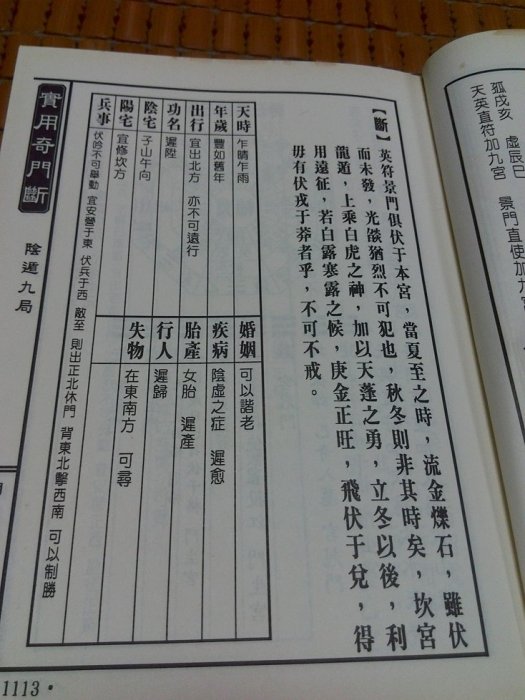 孤戌亥　虛辰巳
天英直符加九宮　景門直使加九宮
【斷】英符景門俱伏于本宮，當夏至之時，流金爍石，雖伏
而未發，光燄猶烈不可犯也，秋冬則非其時矣，坎宮
龍遁，上乘白虎之神，加以天蓬之勇，立冬以後，利
用遠征，若白露寒露之候，庚金正旺，飛伏于兌，得
毋有伏戎于莽者乎，不可不戒。
天時　乍晴乍雨
年歲　豐如舊年
出行　宜出北方　亦不可遠行
功名　遲陞
陰宅　子山午向
陽宅　宜修坎方
兵事　伏吟不可舉動　宜安營于東　伏兵于西　敵至　則出正北休門　背東北擊西南　可以制勝
婚姻　可以諧老
疾病　陰虛之症　遲愈
胎產　女胎　遲產
行人　遲歸
失物　在東南方　可尋
實用奇門斷
陰遁九局
1113·